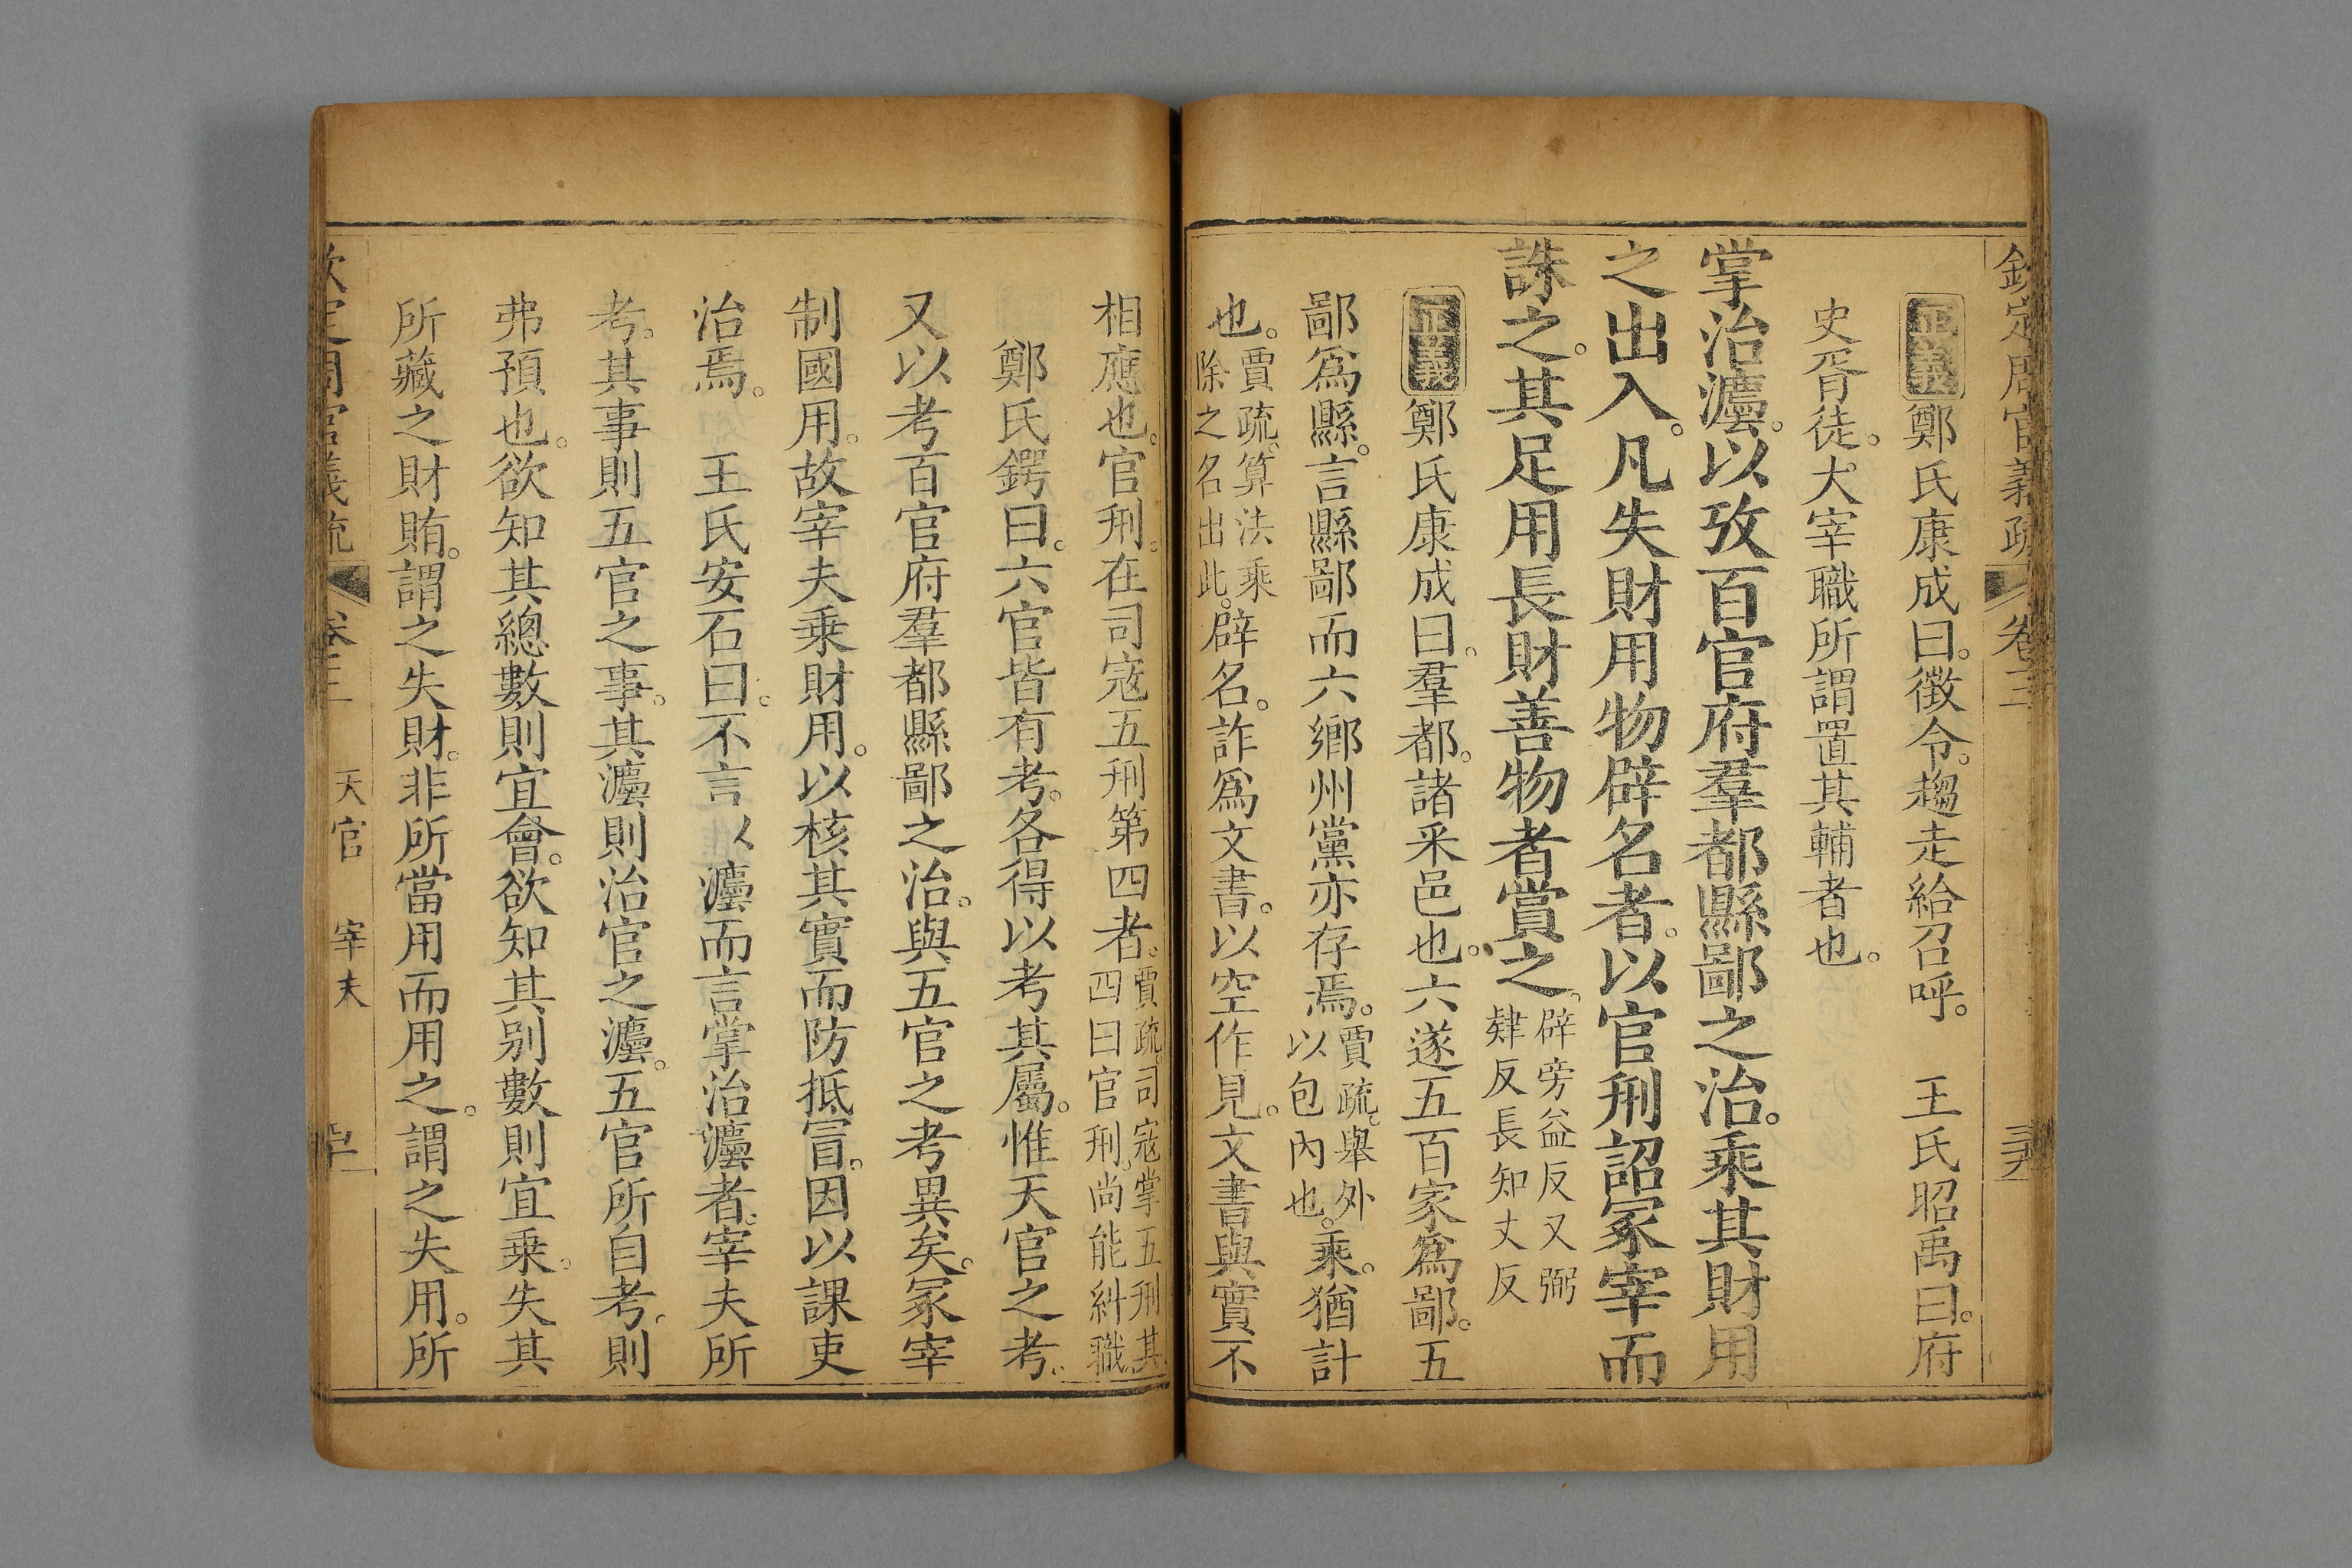 欽定周官義疏 卷三
正義鄭氏康成曰。徵令。趨走給召呼。 王氏昭禹曰。府
史胥徒。大宰職所謂置其輔者也。
掌治灋。以攷百官府羣都縣鄙之治。乘其財用
之出入。凡失財用物辟名者。以官刑詔冢宰而
誅之。其足用長財善物者賞之。辟旁益反又弼
肄反長知丈反
正義鄭氏康成曰。羣都。諸采邑也。六遂五百家爲鄙。五
鄙爲縣。言縣鄙而六鄉州黨亦存焉。賈疏。舉外
以包內也。乘。猶計
也。賈疏。算法乘
除之名出此。辟名。詐爲文書。以空作見。文書與實不
相應也。官刑。在司寇五刑第四者。賈疏。司寇掌五刑其
四曰官刑。尚能糾職。
鄭氏鍔曰。六官皆有考。各得以考其屬。惟天官之考。
又以考百官府羣都縣鄙之治。與五官之考異矣。冢宰
制國用。故宰夫乘財用。以核其實而防抵冒。因以課吏
治焉。 王氏安石曰。不言以灋而言掌治灋者。宰夫所
考。其事則五官之事。其灋則治官之灋。五官所自考。則
弗預也。欲知其總數則宜會。欲知其别數則宜乘。失其
所藏之財賄。謂之失財。非所當用而用之。謂之失用。所
欽定周官義疏 卷三 天官 宰夫